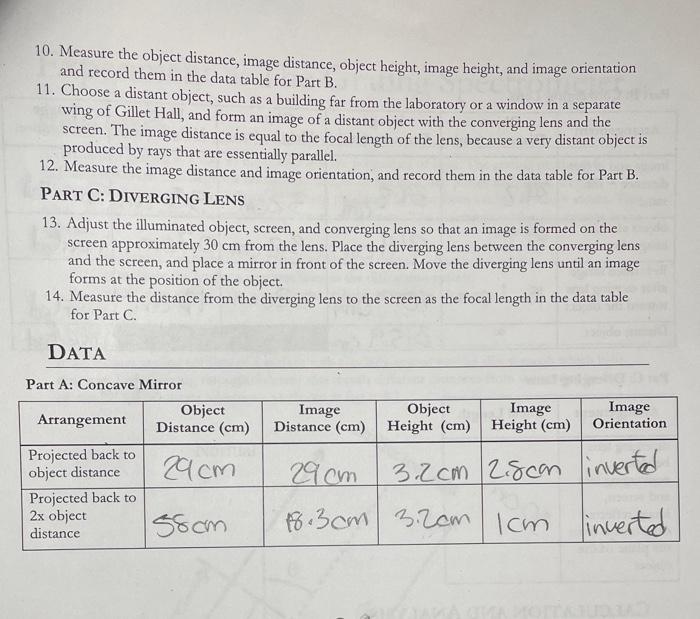 10. Measure the object distance, image distance, object height, image height, and image orientation
and record them in the data table for Part B.
11. Choose a distant object, such as a building far from the laboratory or a window in a separate
wing of Gillet Hall, and form an image of a distant object with the converging lens and the
screen. The image distance is equal to the focal length of the lens, because a very distant object is
produced by rays that are essentially parallel.
12. Measure the image distance and image orientation, and record them in the data table for Part B.
PART C: DIVERGING LENS
13. Adjust the illuminated object, screen, and converging lens so that an image is formed on the
screen approximately 30 cm from the lens. Place the diverging lens between the converging lens
and the screen, and place a mirror in front of the screen. Move the diverging lens until an image
forms at the position of the object.
14. Measure the distance from the diverging lens to the screen as the focal length in the data table
for Part C.
DATA
Part A: Concave Mirror
Arrangement
Object
Distance (cm)
Image
Distance (cm)
Object
Height (cm)
Image
Height (cm)
Image
Orientation
Projected back to
object distance
29cm
29cm
3.2cm
2.8cm
inverted
Projected back to
2x object
distance
58cm
18.3cm
3.2cm
1cm
inverted